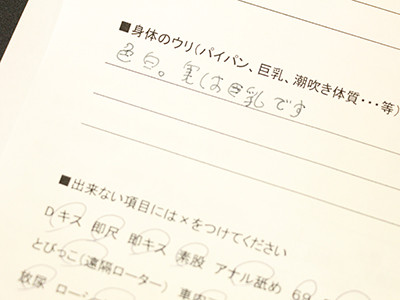 ■身体のウリ(パイパン、巨乳、潮吹き体質・・・等)
色白。実は巨乳です
■出来ない項目には×をつけてください
Dキス 即尺 即キス 素股 アナル舐め 69
とびっこ(遠隔ローター) 車内
放尿 ロー